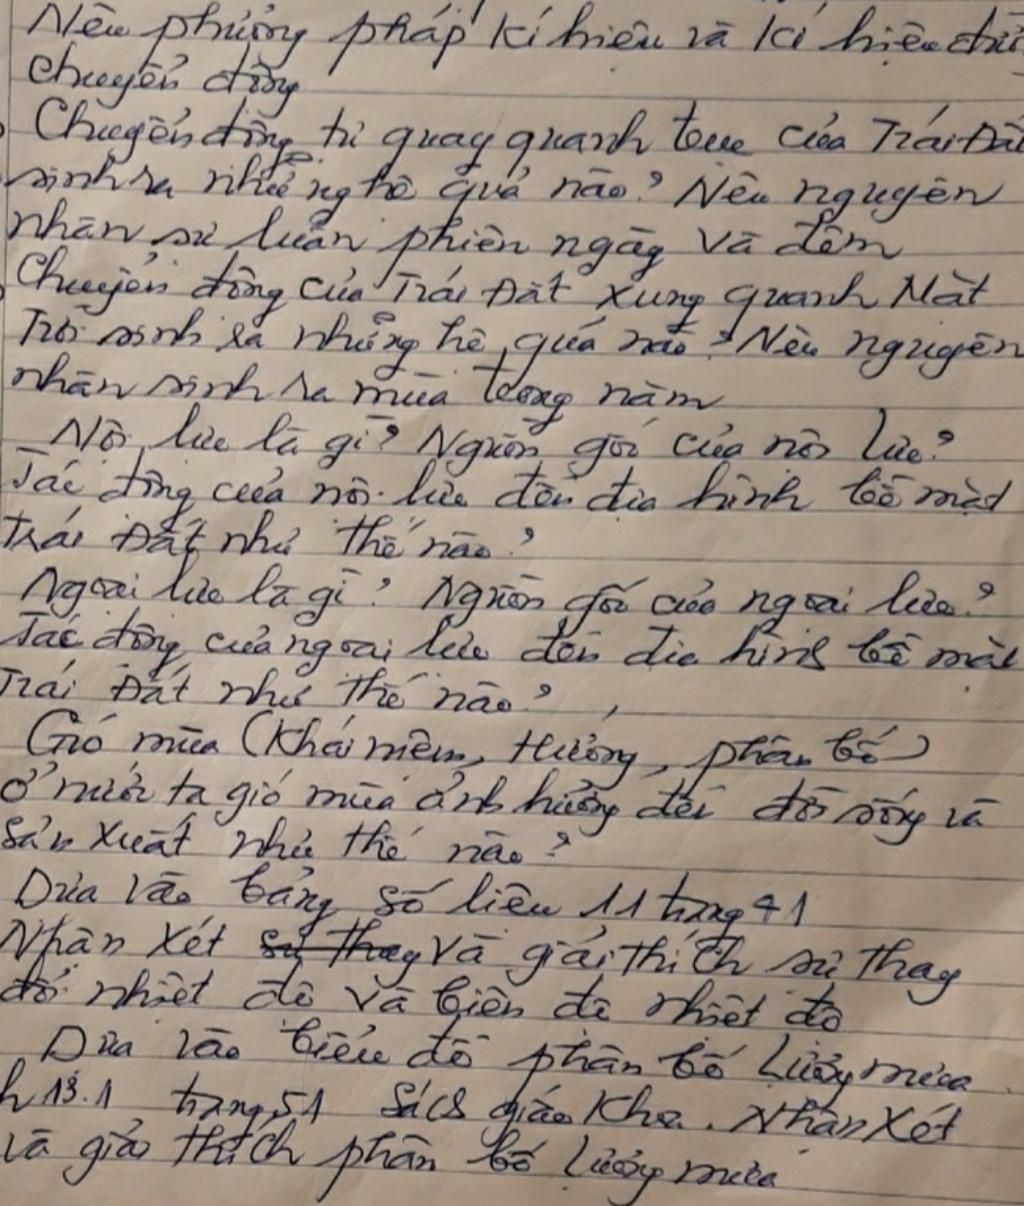 Nêu phương pháp kí hiệu và kí hiệu
chuyển động
Chuyển động tự quay quanh trục của Trái Đất
sinh ra những hệ quả nào? Nêu nguyên
nhân sự luân phiên ngày và đêm
Chuyển động của Trái Đất xung quanh Mặt
Trời sinh ra những hệ quả nào? Nêu nguyên
nhân sinh ra mùa trong năm
Nội lực là gì? Nguồn gốc của nội lực?
Tác động của nội lực đến địa hình bề mặt
Trái Đất như thế nào?
Ngoại lực là gì? Nguồn gốc của ngoại lực?
Tác động của ngoại lực đến địa hình bề mặt
Trái Đất như thế nào?
Gió mùa (Khái niệm, Hướng, phân bố)
ở nước ta gió mùa ảnh hưởng đến đời sống và
sản xuất như thế nào?
Dựa vào bảng số liệu 11 trang 41
Nhận xét và giải thích sự thay
đổi nhiệt độ và biên độ nhiệt độ
Dựa vào biểu đồ phân bố lượng mưa
h13.1 trang 51 Sách giáo khoa. Nhận xét
và giải thích phân bố lượng mưa